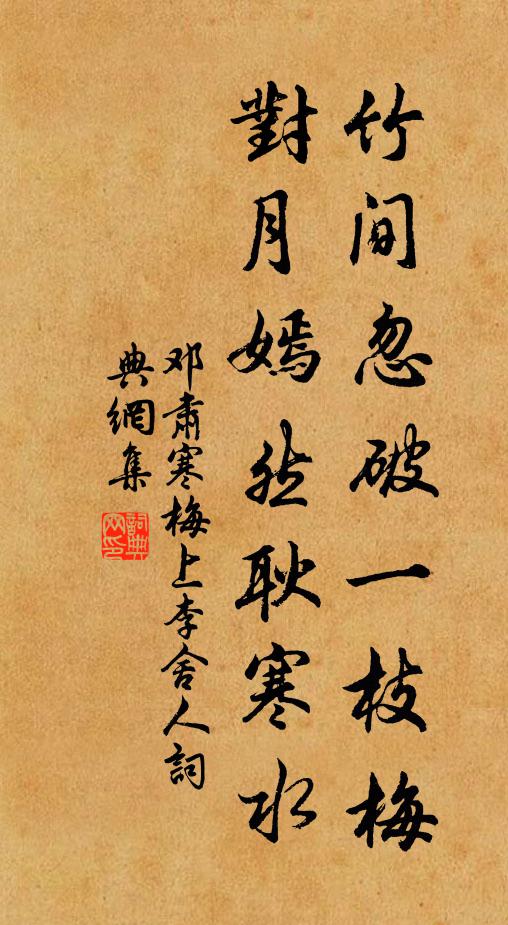 竹间忽破一枝梅
對月嫣然耿寒水
邓肃寒梅上李舍人詞
典網集
詞典
网印